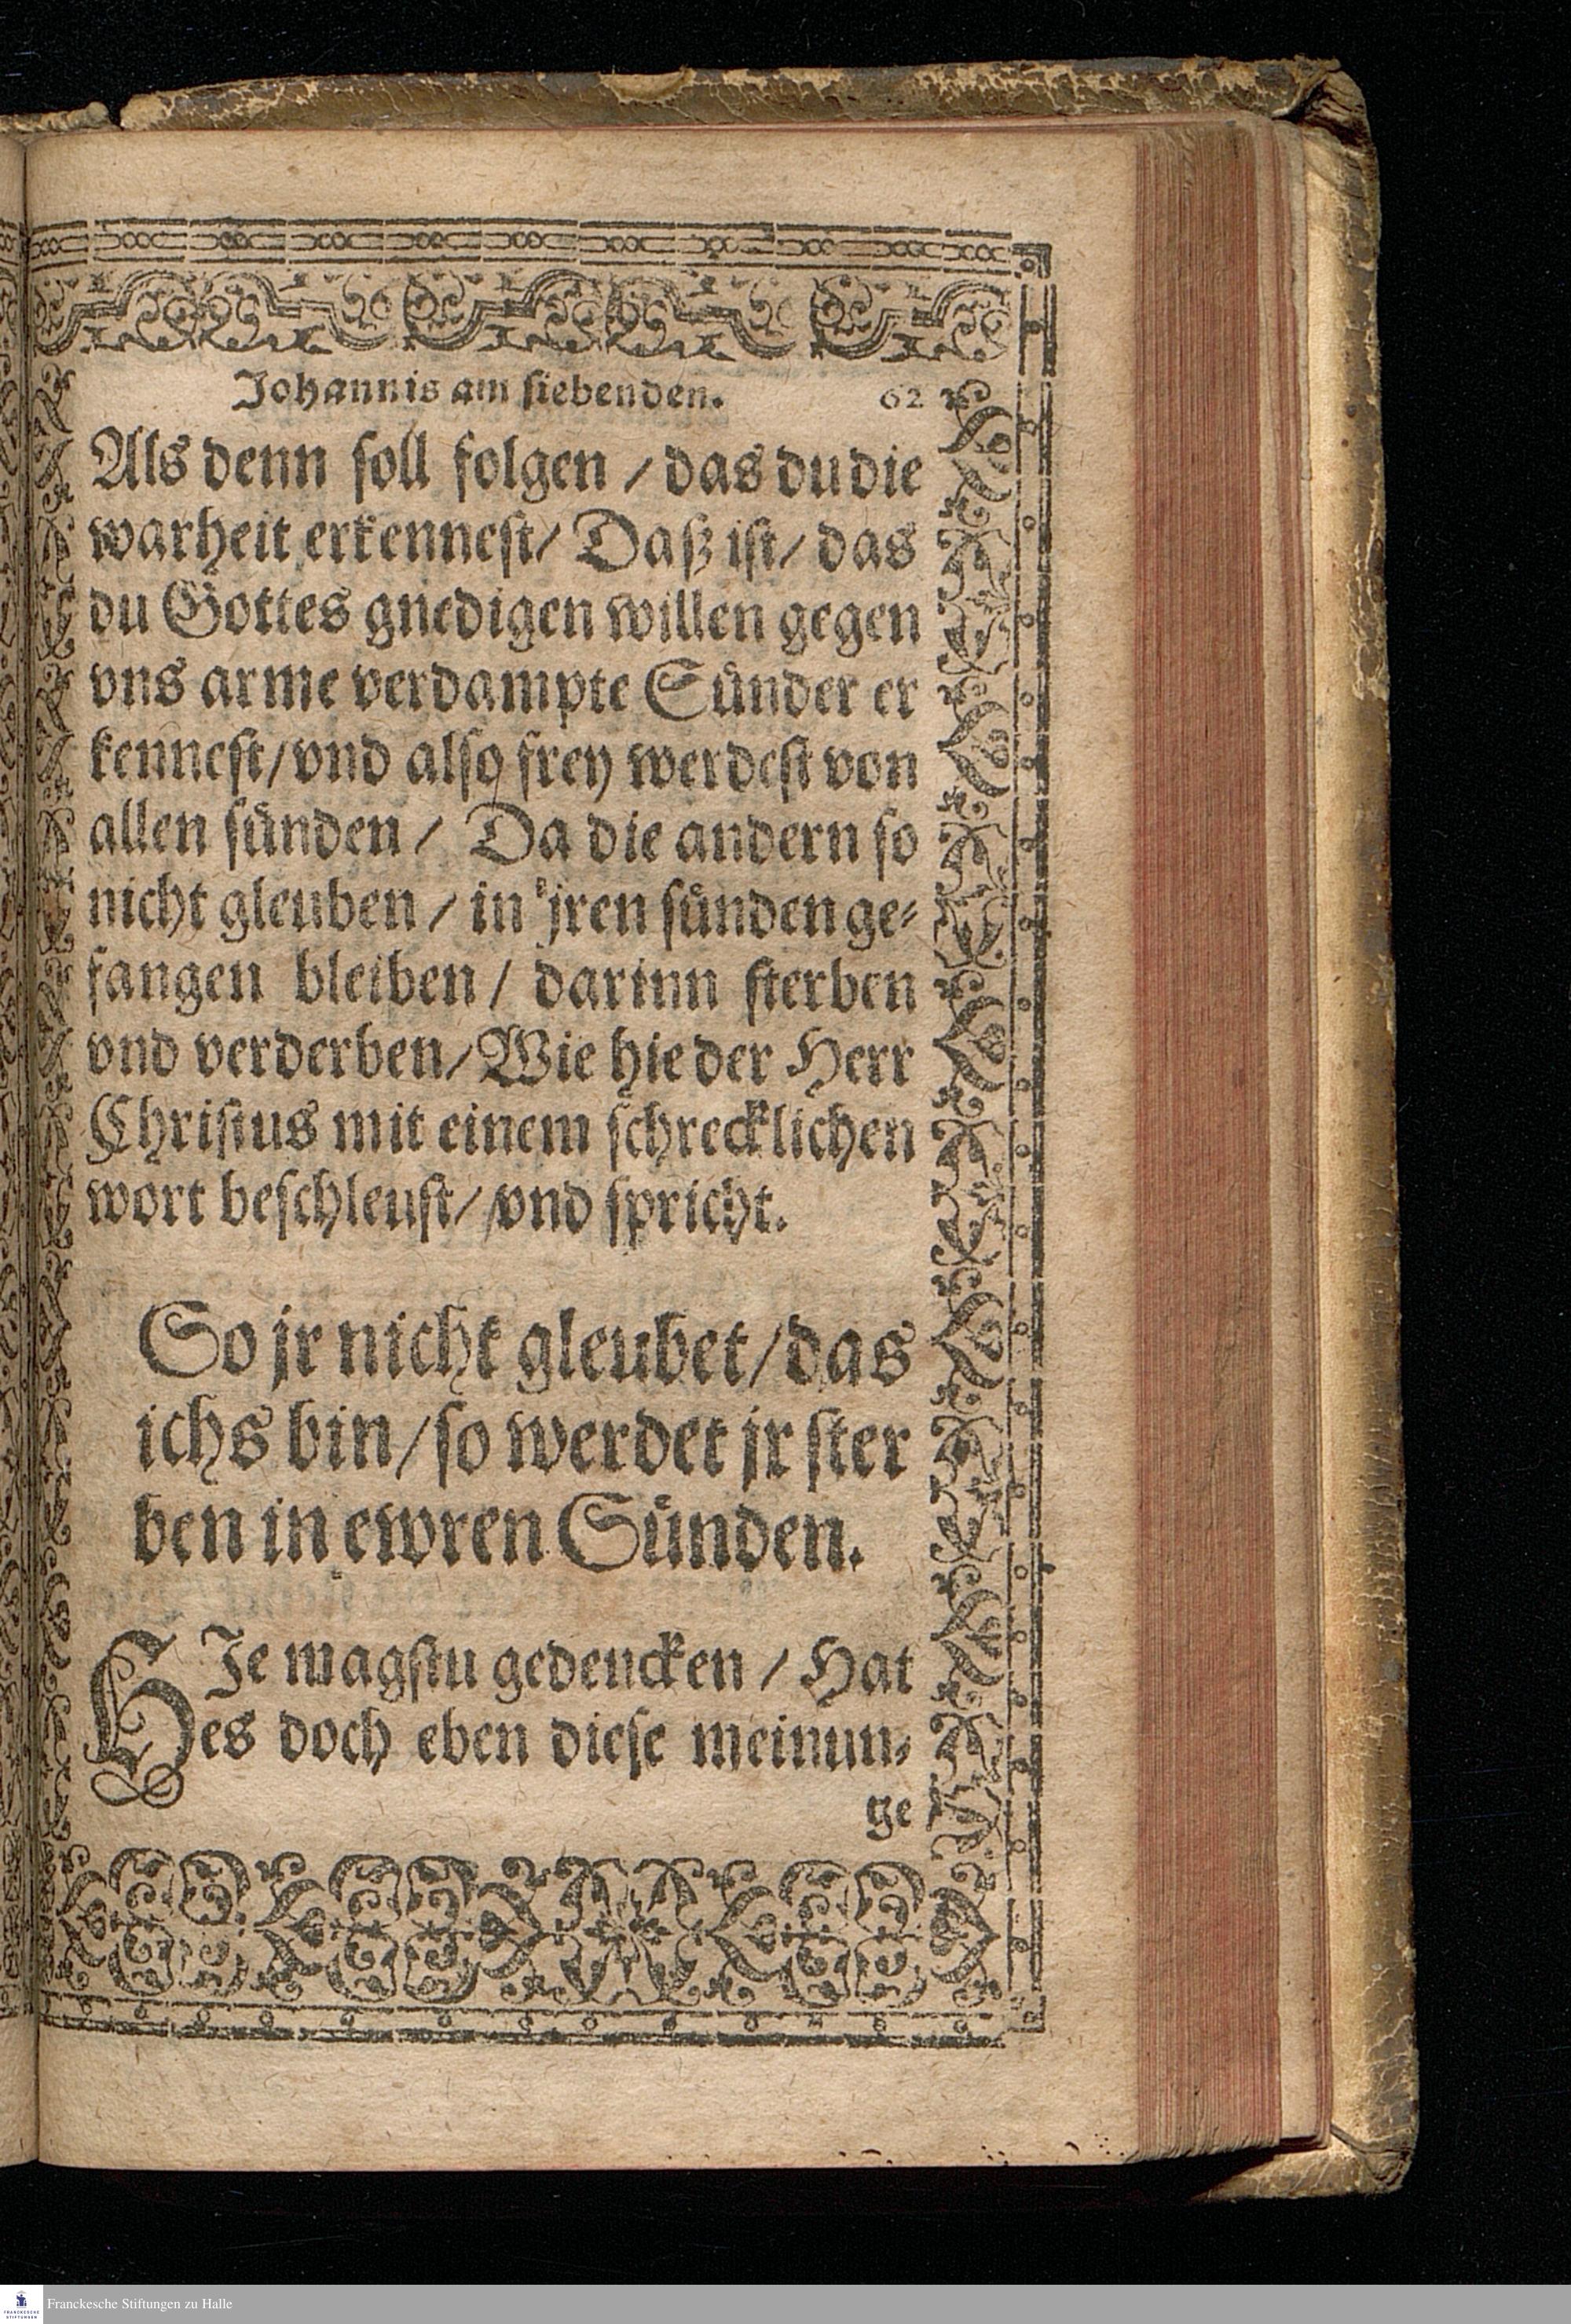 Johannis am siebenden. 62
Als denn soll folgen / das du die
warheit erkennest/ Daß ist/ das
du Gottes gnedigen willen gegen
vns arme verdampte Sünder er
kennest/vnd also frey werdest von
allen sünden / Da die andern so
nicht gleuben / in jren sünden ge-
fangen bleiben / darinn sterben
vnd verderben/ Wie hie der Herr
Christus mit einem schrecklichen
wort beschleust/ vnd spricht.
So jr nicht gleubet/das
ichs bin/so werdet jr ster
ben in ewren Sünden.
HIe magstu gedencken / Hat
es doch eben diese meinun-
ge
Franckesche Stiftungen zu Halle
FRANCKESCHE
STIFTUNGEN